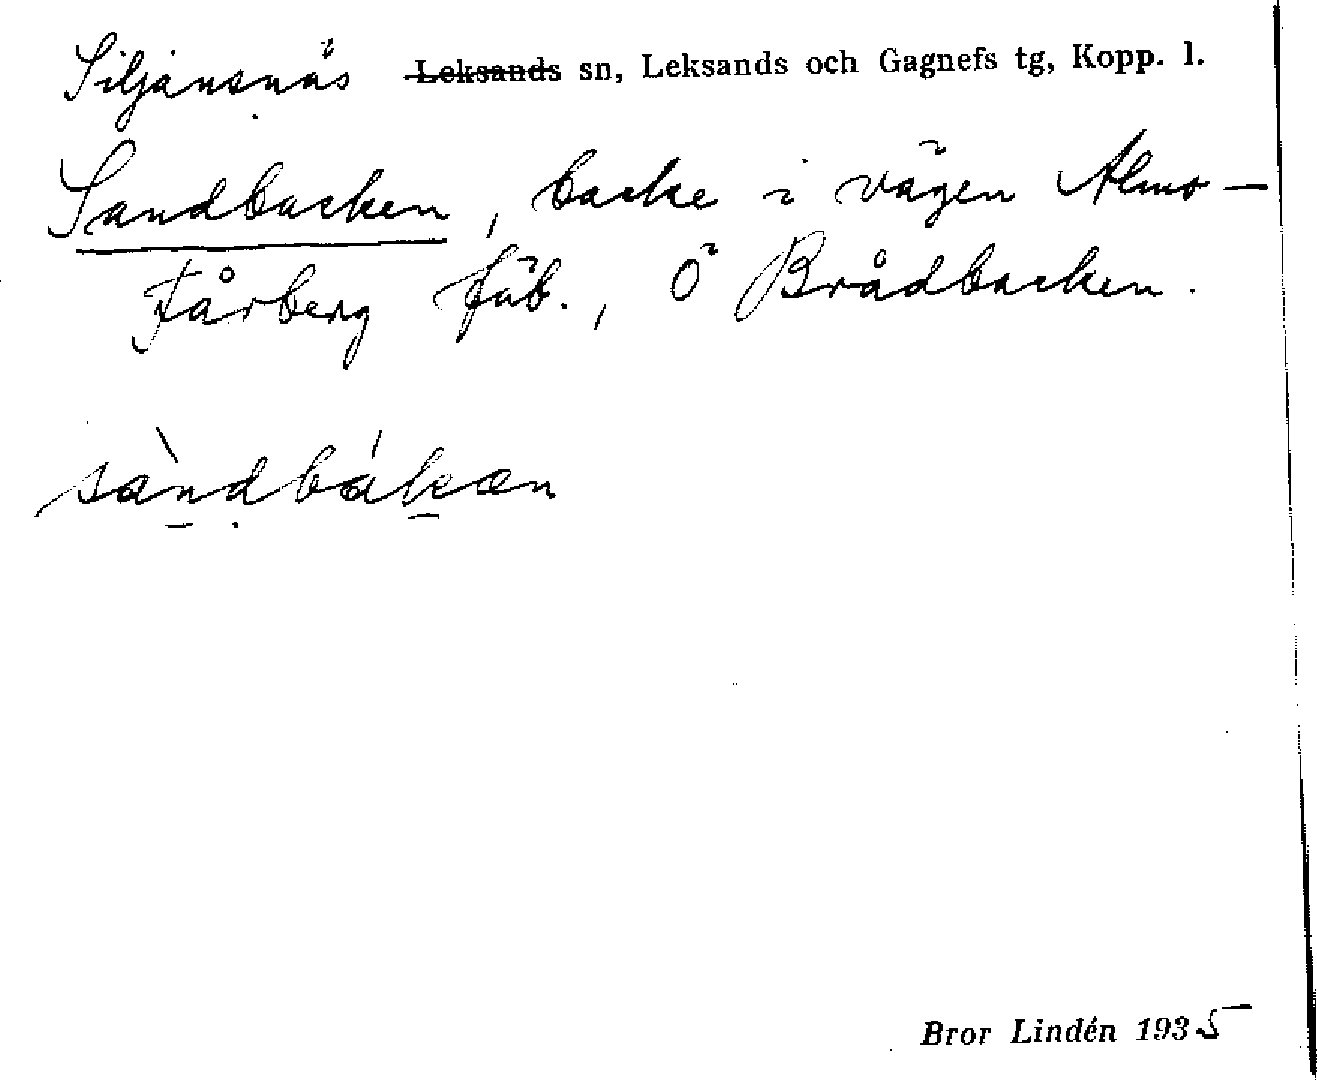 Siljansnäs Leksands sn, Leksands och Gagnefs tg, Kopp. l.
Sandbacken, backe i vägen Almo–
Fårberg fäb., Ö Brådbacken.
sàndbákæn
Bror Lindén 1935